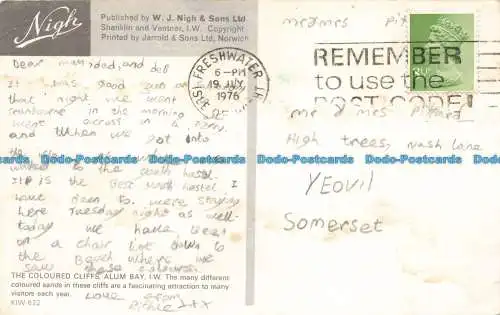 Nigh
Published by W. J. Nigh & Sons Ltd
Shanklin and Ventnor, I.W. Copyright
Printed by Jarrold & Sons Ltd, Norwich
Dear mum, dad, and deb
It was good fun on
that night we went
in the morning
went across in a ferry
and when we got into
to the youth hostel.
It is the Best youth hostel I
have been to. were staying
here Tuesday night as well.
today we have been
on a chair lift down to
the Beach where we
saw these coloured
THE COLOURED CLIFFS, ALUM BAY, I.W. The many different
coloured sands in these cliffs are a fascinating attraction to many
visitors each year.
love from
Richie xxx
KIW 672
FRESHWATER I.
6-PM
19 JLY
1976
REMEMBER
to use the
POST CODE!
mr & mrs
mr & mrs
High trees, Nash Lane
YEOVIL
Somerset
Dodo-Postcards.com